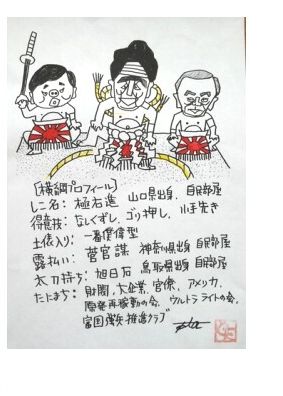 [横綱プロフィール]
しこ名:極右進 山口県出身、自民部屋
得意技:なしくずし、ゴリ押し、小手先き
土俵入り:一番僕偉型
露払い:菅官謀 神奈川県出身 自民部屋
太刀持ち:旭日石 鳥取県出身 自民部屋
たにまち:財閥、大企業、官僚、アメリカ、
原発再稼動の会、ウルトラライトの会、
富国強兵推進クラブ